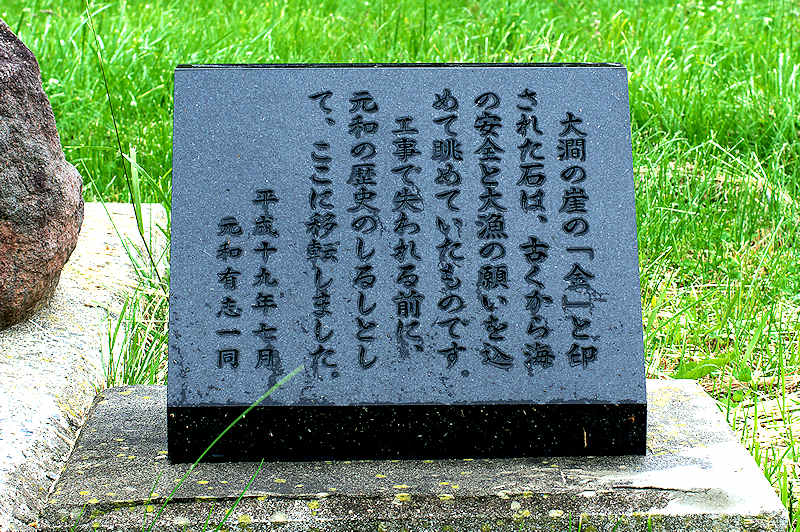 大澗の崖の「金」と印
された石は、古くから海
の安全と大漁の願いを込
めて眺めていたものです。
工事で失われる前に、
元和の歴史のしるしとし
て、ここに移転しました。
平成十九年七月
元和有志一同